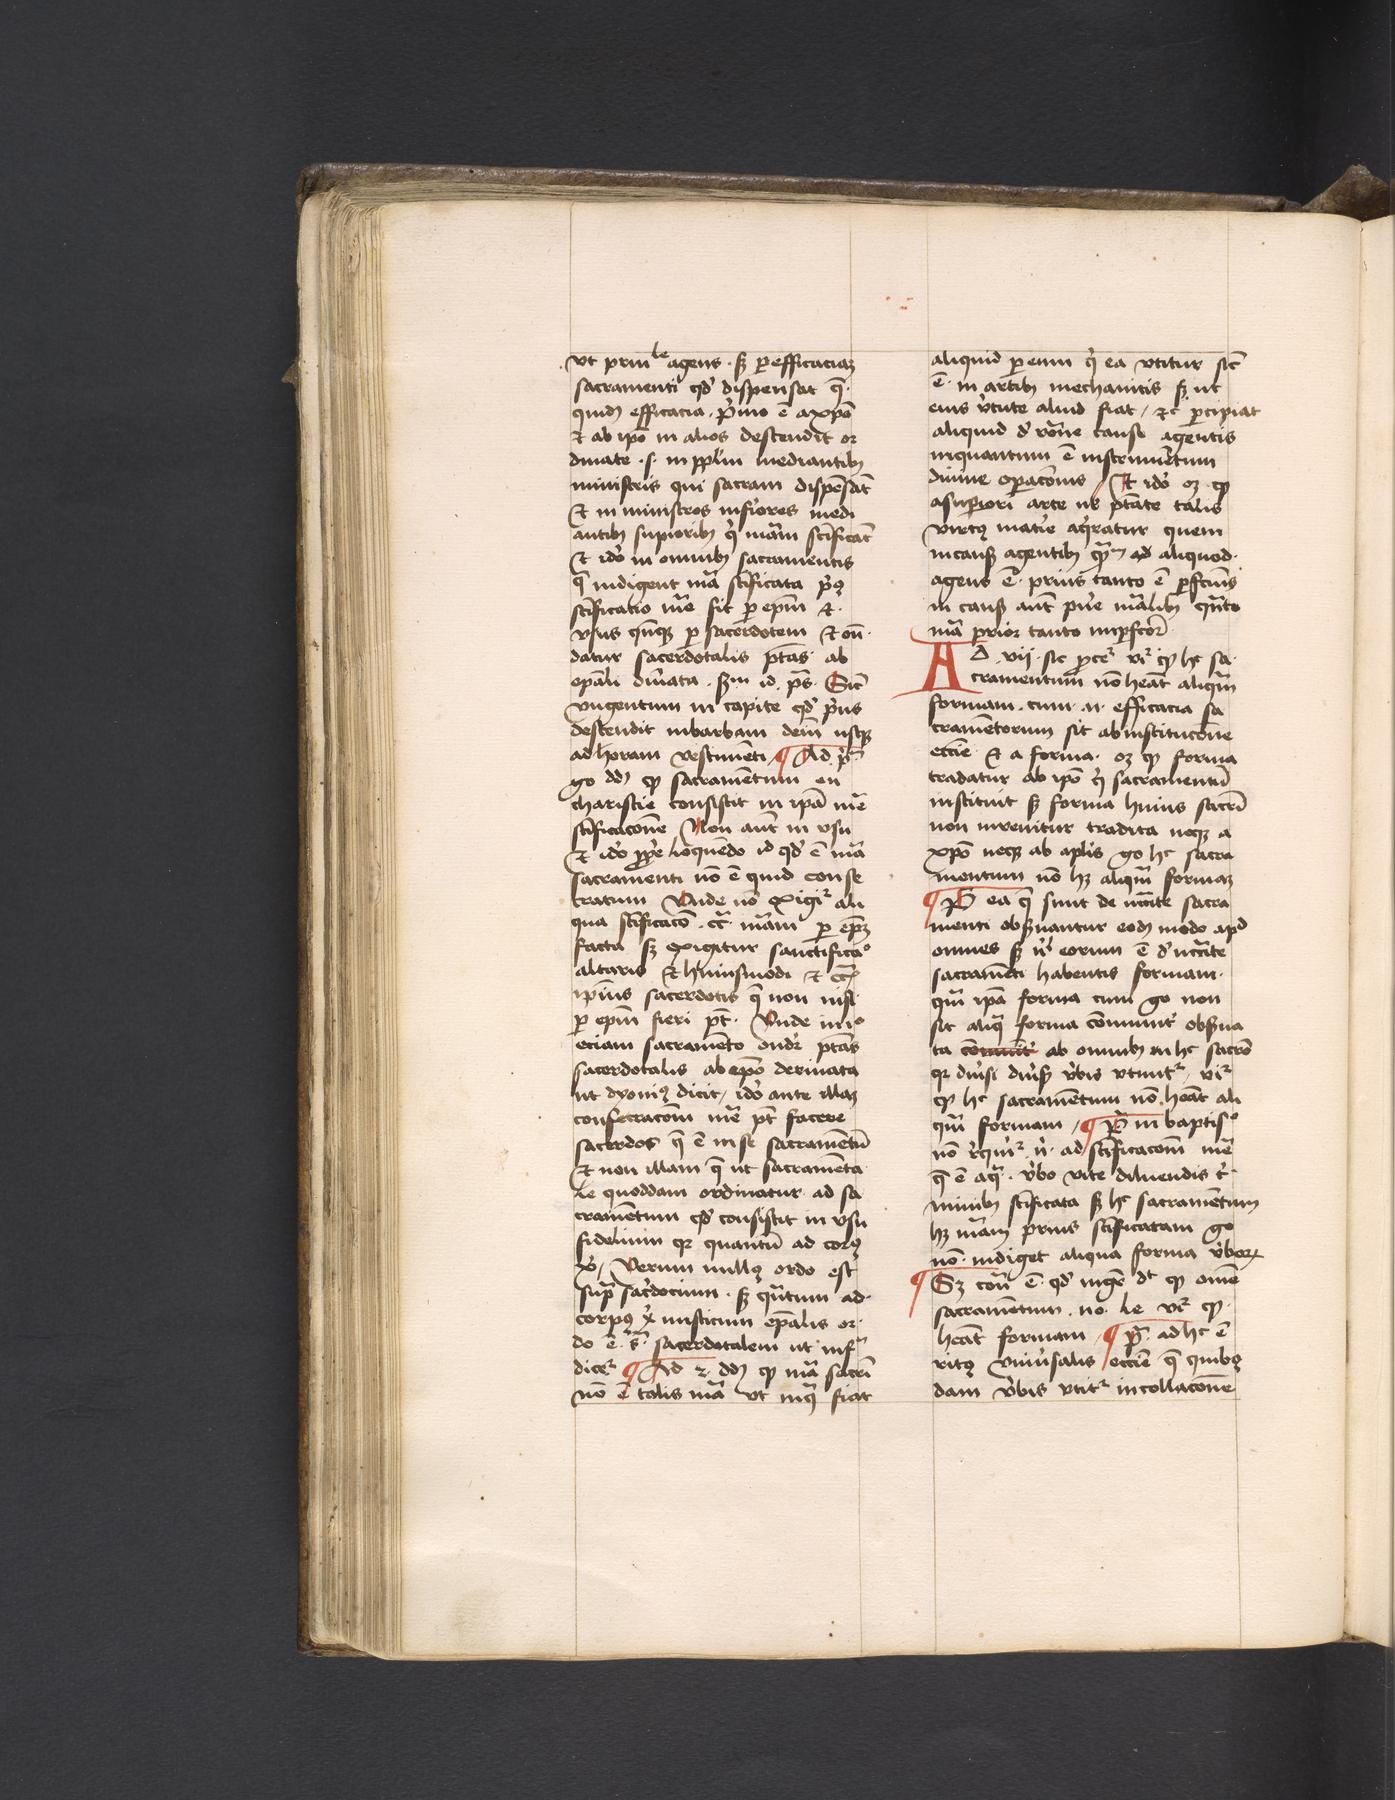 vt prin̄le agens · sꝫ per efficaciaꝫ
sacramenti qd' dispensat q̄
quidē efficacia · p'mo ē a xpō
⁊ ab ipō in alios descendit or
dinate · s · in ppl'm mediantibꝫ
ministris qui sacram dispēsāt
⁊ in ministros inf'iores medi
antibꝫ sup'ioribꝫ q' mām sc̄ificāt
⁊ idō in omnibꝫ sacramentis
q̄ indigent mā sc̄ificata p'ꝰ
sc̄ificatio mē fit per ep̄m ⁊
vsus qn̄qꝫ per sacerdotem ⁊ on̄
datur sacerdotalis p̄tās ab
ep̄ali diriuata · scdm id · p̄s · Sic̄
vngentum in capite qd' p'us
descendit in barbam dein̄ usqꝫ
ad horam vestimēti ¶ Ad p̄m
go dd̄m ꝙ sacramētum eu
charistie consistit in ipā mē
sc̄ificacōne Non aūt in vsu
⁊ idō ppr̄e loquendo id qd' ē mā
sacramenti nō ē quid conse
cratum Vnde nō exigit' ali
qua sc̄ificacō · c̄ mām per ep̄m
facta sꝫ exigitur sanctificaᵒ
altaris ⁊ huiusmodi ⁊ ec̄
ipsius sacerdotis q̄ non nisi
per ep̄m fieri p̄t · Vnde in iᵒ
eciam sacramēto ondr̄ p̄tās
sacerdotalis ab ep̄o deriuata
ut dyoniꝰ dicit / idō ante illaꝫ
consecracōm mē p̄t facere
sacerdos q̄ ē in se sacramētū
⁊ non illam q̄ ut sacramēta
le quoddam ordinatur ad sa
cramētum qd' consistit in vsu
fidelium qr quantū ad corpꝰ
xp̄i / Verum nullꝰ ordo est
sup̄ sac'docium · sꝫ q̄ntum ad
corpꝰ x̄ misticum ep̄alis or
do ē s̄ · sacerdotalem ut inf̄
dicet' ¶ Ad 2 dd̄m ꝙ mā sacr̄i
nō ē talis mā vt in q̄ fiat
aliquid per eum q' ea vtitur sic̄
ē · in artibꝫ mechanicis sꝫ ut
eius v'tute aliud fiat / ⁊c̄ percipiat
aliquid d' rōne cause agentis
inquantum ē instrumētum
diuine operacōnis / Et idō oꝫ ꝙ
a sup'iori arte ul' p̄tāte talis
virtꝰ mat'ie aq̄ratur quem
in causꝫ agentibꝫ q̄ ad aliquod
agens ē prius tanto ē p̄fc̄ius
in causꝫ aūt pure mālibꝫ q̄nto
mā prior tanto imp̄fcior
AD vij · sic ꝓcedit' vr̄ ꝙ h̄ sa
cramentum nō heāt aliquā
formam · cum · n̄ efficacia sa
cramētorum sit ab institucōne
ecc̄ie ⁊ a forma · oꝫ ꝙ forma
tradatur ab ipō q' sacramentū
instituit sꝫ forma huius sacr̄i
non inuenitur tradita neqꝫ a
xp̄o neqꝫ ab ap̄lis go h̄ sacra
mentum nō hꝫ aliquā formaꝫ
¶ P̄ ea q̄ sunt de nc̄cite sacra
menti obs̄uantur eodē modo apd
omnes sꝫ n̄l eorum ē d' nc̄cāte
sacramēti habentis formam
quā ipā forma cum go non
sit aliq̄ forma communit' obs̄ua
ta com̄unit' ab omnibꝫ in h̄ sacr̄o
qr diu'si diu'sꝫ v'bis vtunt' / vr̄
ꝙ h̄ sacramentum nō heāt ali
quā formam / ¶ P̄ in baptisᵒ
nō r̄quirit' n̄ · ad sc̄ificacōm mē
q̄ ē aq̄ · v'bo vite diluendis c̄
minibꝫ sc̄ificata sꝫ h̄ sacramētum
hꝫ mām prius sc̄ificatam go
nō indiget aliqua forma v'boꝝ
¶ Sꝫ con̄ ē · qd' mgr̄ dt ꝙ omē
sacramētum · no · le vr̄ ꝙ
heāt formam / ¶ p̄ ad h̄ ē
ritꝰ vniu'salis ecc̄ie q̄ quibꝰ
dam v'bis vtit' in collacōne